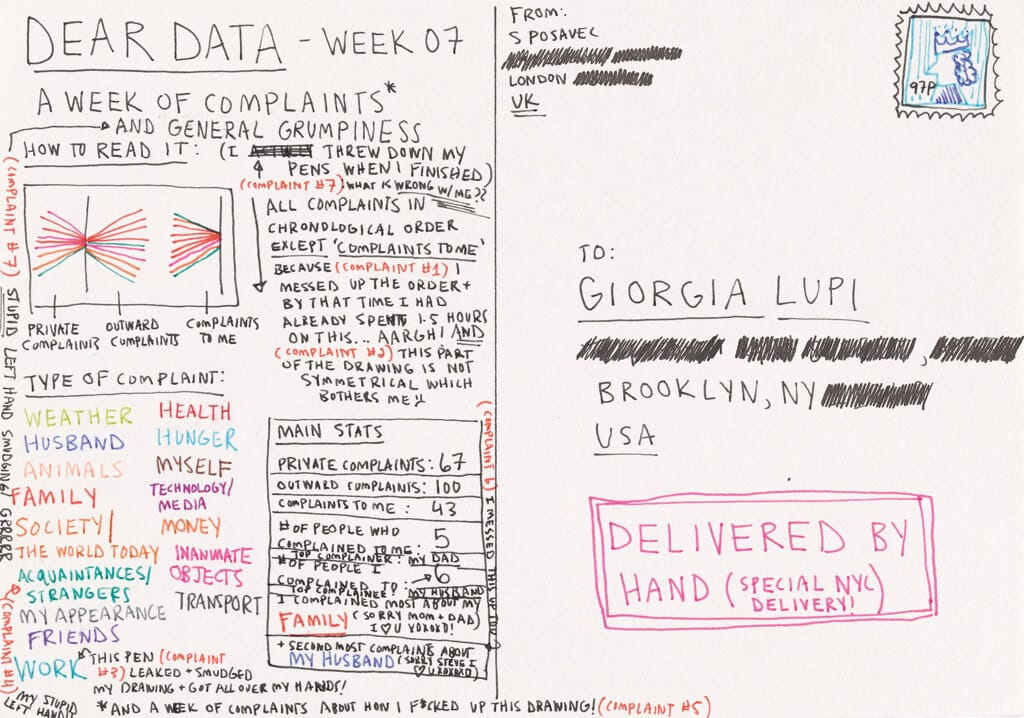 DEAR DATA - WEEK 07
A WEEK OF COMPLAINTS*
AND GENERAL GRUMPINESS
HOW TO READ IT: (I THREW DOWN MY
PENS WHEN I FINISHED)
(COMPLAINT #7) WHAT IS WRONG W/ME??
ALL COMPLAINTS IN
CHRONOLOGICAL ORDER
EXCEPT 'COMPLAINTS TO ME'
BECAUSE (COMPLAINT #1) I
MESSED UP THE ORDER +
BY THAT TIME I HAD
ALREADY SPENT 1.5 HOURS
ON THIS... AARGH! AND
(COMPLAINT #2) THIS PART
OF THE DRAWING IS NOT
SYMMETRICAL WHICH
BOTHERS ME
PRIVATE COMPLAINTS
OUTWARD COMPLAINTS
COMPLAINTS TO ME
(COMPLAINT #7) STUPID LEFT HAND SMUDGING! GRRRRR
TYPE OF COMPLAINT:
WEATHER
HUSBAND
ANIMALS
FAMILY
SOCIETY/
THE WORLD TODAY
ACQUAINTANCES/
STRANGERS
MY APPEARANCE
FRIENDS
WORK
HEALTH
HUNGER
MYSELF
TECHNOLOGY/
MEDIA
MONEY
INANIMATE
OBJECTS
TRANSPORT
THIS PEN (COMPLAINT
#3) LEAKED + SMUDGED
MY DRAWING + GOT ALL OVER MY HANDS!
(COMPLAINT #4)
MY STUPID
LEFT HAND!
MAIN STATS
PRIVATE COMPLAINTS: 67
OUTWARD COMPLAINTS: 100
COMPLAINTS TO ME: 43
# OF PEOPLE WHO
COMPLAINED TO ME: 5
TOP COMPLAINER: MY DAD
# OF PEOPLE I
COMPLAINED TO: 6
TOP COMPLAINEE: MY HUSBAND
I COMPLAINED MOST ABOUT MY
FAMILY (SORRY MOM + DAD)
I ♡ U XOXOXO!
+ SECOND MOST COMPLAINTS ABOUT
MY HUSBAND (SORRY STEVE I
♡ U XOXOXO)
(COMPLAINT 6) I MESSED THIS UP TOO
*AND A WEEK OF COMPLAINTS ABOUT HOW I F*CKED UP THIS DRAWING! (COMPLAINT #5)
FROM:
S POSAVEC
LONDON
UK
97P
TO:
GIORGIA LUPI
BROOKLYN, NY
USA
DELIVERED BY
HAND (SPECIAL NYC
DELIVERY!)